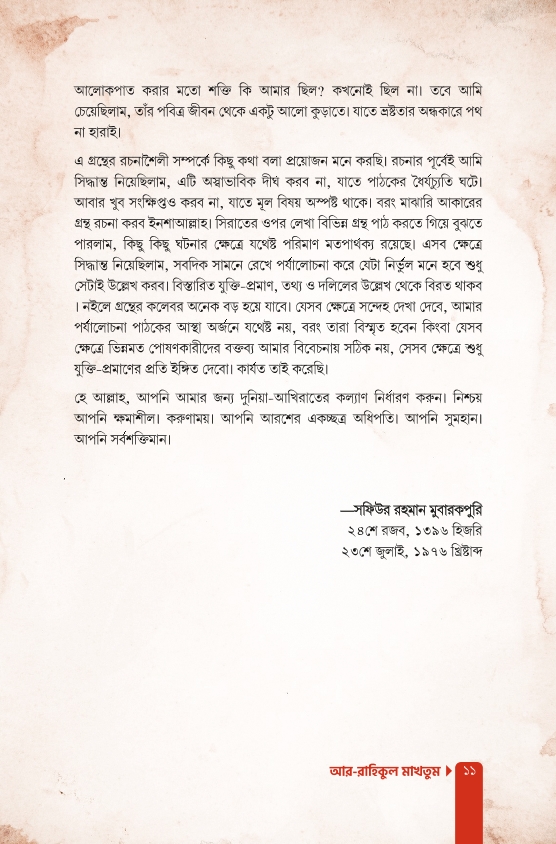 আলোকপাত করার মতো শক্তি কি আমার ছিল? কখনোই ছিল না। তবে আমি
চেয়েছিলাম, তাঁর পবিত্র জীবন থেকে একটু আলো কুড়াতে। যাতে ভ্রষ্টতার অন্ধকারে পথ
না হারাই।
এ গ্রন্থের রচনাশৈলী সম্পর্কে কিছু কথা বলা প্রয়োজন মনে করছি। রচনার পূর্বেই আমি
সিদ্ধান্ত নিয়েছিলাম, এটি অস্বাভাবিক দীর্ঘ করব না, যাতে পাঠকের ধৈর্যচ্যুতি ঘটে।
আবার খুব সংক্ষিপ্তও করব না, যাতে মূল বিষয় অস্পষ্ট থাকে। বরং মাঝারি আকারের
গ্রন্থ রচনা করব ইনশাআল্লাহ। সিরাতের ওপর লেখা বিভিন্ন গ্রন্থ পাঠ করতে গিয়ে বুঝতে
পারলাম, কিছু কিছু ঘটনার ক্ষেত্রে যথেষ্ট পরিমাণ মতপার্থক্য রয়েছে। এসব ক্ষেত্রে
সিদ্ধান্ত নিয়েছিলাম, সবদিক সামনে রেখে পর্যালোচনা করে যেটা নির্ভুল মনে হবে শুধু
সেটাই উল্লেখ করব। বিস্তারিত যুক্তি-প্রমাণ, তথ্য ও দলিলের উল্লেখ থেকে বিরত থাকব
। নইলে গ্রন্থের কলেবর অনেক বড় হয়ে যাবে। যেসব ক্ষেত্রে সন্দেহ দেখা দেবে, আমার
পর্যালোচনা পাঠকের আস্থা অর্জনে যথেষ্ট নয়, বরং তারা বিস্মৃত হবেন কিংবা যেসব
ক্ষেত্রে ভিন্নমত পোষণকারীদের বক্তব্য আমার বিবেচনায় সঠিক নয়, সেসব ক্ষেত্রে শুধু
যুক্তি-প্রমাণের প্রতি ইঙ্গিত দেবো। কার্যত তাই করেছি।
হে আল্লাহ, আপনি আমার জন্য দুনিয়া-আখিরাতের কল্যাণ নির্ধারণ করুন। নিশ্চয়
আপনি ক্ষমাশীল। করুণাময়। আপনি আরশের একচ্ছত্র অধিপতি। আপনি সুমহান।
আপনি সর্বশক্তিমান।
—সফিউর রহমান মুবারকপুরি
২৪শে রজব, ১৩৯৬ হিজরি
২৩শে জুলাই, ১৯৭৬ খ্রিষ্টাব্দ
আর-রাহিকুল মাখতুম ১১